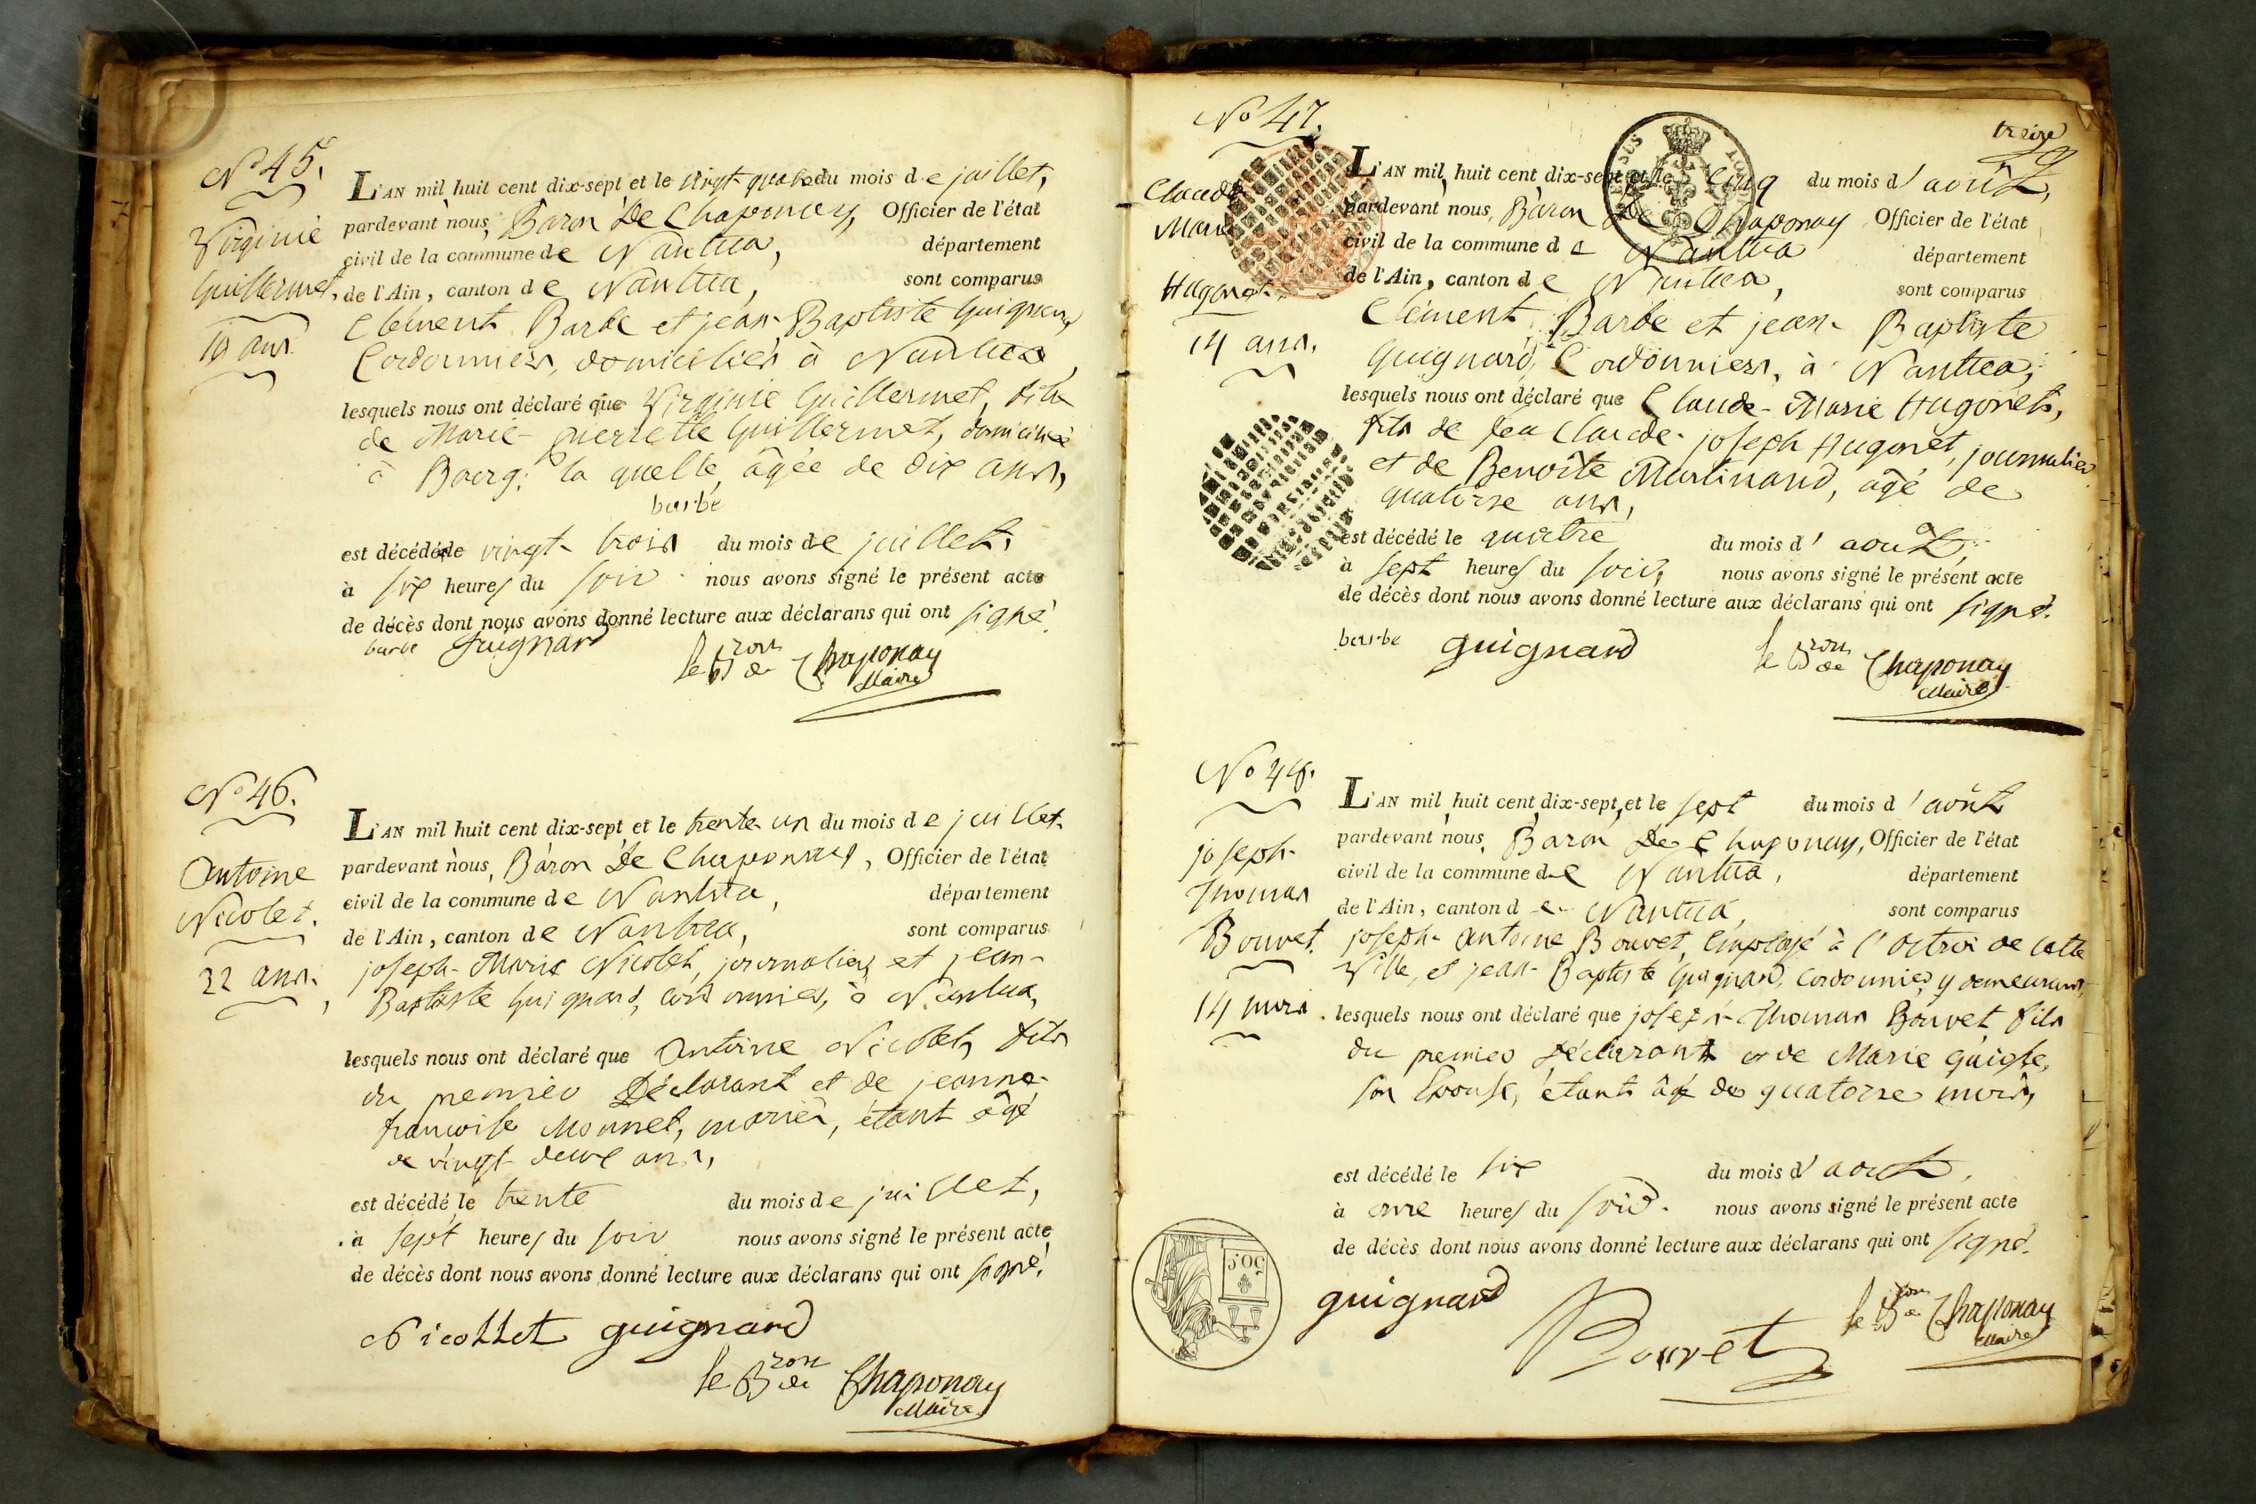 No 45.
Virginie
Guillermet,
10 ans.
L'AN mil huit cent dix-sept et le vingt-quatre du mois de juillet,
pardevant nous, Baron De Chaponay, Officier de l'état
civil de la commune de Nantua, département
de l'Ain, canton de Nantua, sont comparus
Clément Barbe et jean-Baptiste Guignard,
Cordonniers, domiciliés à Nantua,
lesquels nous ont déclaré que Virginie Guillermet, fille
de Marie-pierrette Guillermet, domiciliée
à Bourg; la quelle âgée de dix ans,
barbe
est décédée le vingt-trois du mois de juillet,
à six heures du soir nous avons signé le présent acte
de décès dont nous avons donné lecture aux déclarans qui ont signé.
barbe guignard
le Bron de Chaponay
Maire
No 46.
Antoine
Nicolet.
22 ans.
L'AN mil huit cent dix-sept et le trente-un du mois de juillet,
pardevant nous, Baron De Chaponay, Officier de l'état
civil de la commune de Nantua, département
de l'Ain, canton de Nantua, sont comparus
joseph-Marie Nicolet, journalier, et jean-
Baptiste Guignard, cordonnier, à Nantua,
lesquels nous ont déclaré que Antoine Nicolet, fils
du premier Déclarant et de jeanne-
françoise Monnet, mariés, étant âgé
de vingt-deux ans,
est décédé le trente du mois de juillet,
à sept heures du soir nous avons signé le présent acte
de décès dont nous avons donné lecture aux déclarans qui ont signé.
Nicollet guignard
le Bron de Chaponay
Maire
treize
No 47.
Claude
Marie
Hugonet.
14 ans.
L'AN mil huit cent dix-sept et le cinq du mois d'août,
pardevant nous, Baron De Chaponay Officier de l'état
civil de la commune de Nantua département
de l'Ain, canton de Nantua, sont comparus
Clément Barbe et jean-Baptiste
Guignard, Cordonniers, à Nantua,
lesquels nous ont déclaré que Claude-Marie Hugonet,
fils de feu Claude-joseph Hugonet, journalier
et de Benoîte Martinand, âgé de
quatorse ans,
est décédé le quatre du mois d'août,
à sept heures du soir, nous avons signé le présent acte
de décès dont nous avons donné lecture aux déclarans qui ont signé.
barbe guignard
le Bron de Chaponay
Maire
No 48.
joseph-
Thomas
Bouvet.
14 mois.
L'AN mil huit cent dix-sept et le sept du mois d'août
pardevant nous, Baron De Chaponay, Officier de l'état
civil de la commune de Nantua, département
de l'Ain, canton de Nantua, sont comparus
joseph-Antoine Bouvet, Employé à l'Octroi de cette
Ville, et jean-Baptiste Guignard, cordonnier, y demeurant,
lesquels nous ont déclaré que joseph-Thomas Bouvet fils
du premier Déclarant et de Marie
son Epouse, étant âgé de quatorse mois,
est décédé le six du mois d'août,
à onze heures du soir. nous avons signé le présent acte
de décès dont nous avons donné lecture aux déclarans qui ont signé.
50.C
guignard
Bouvet
le Bron de Chaponay
Maire